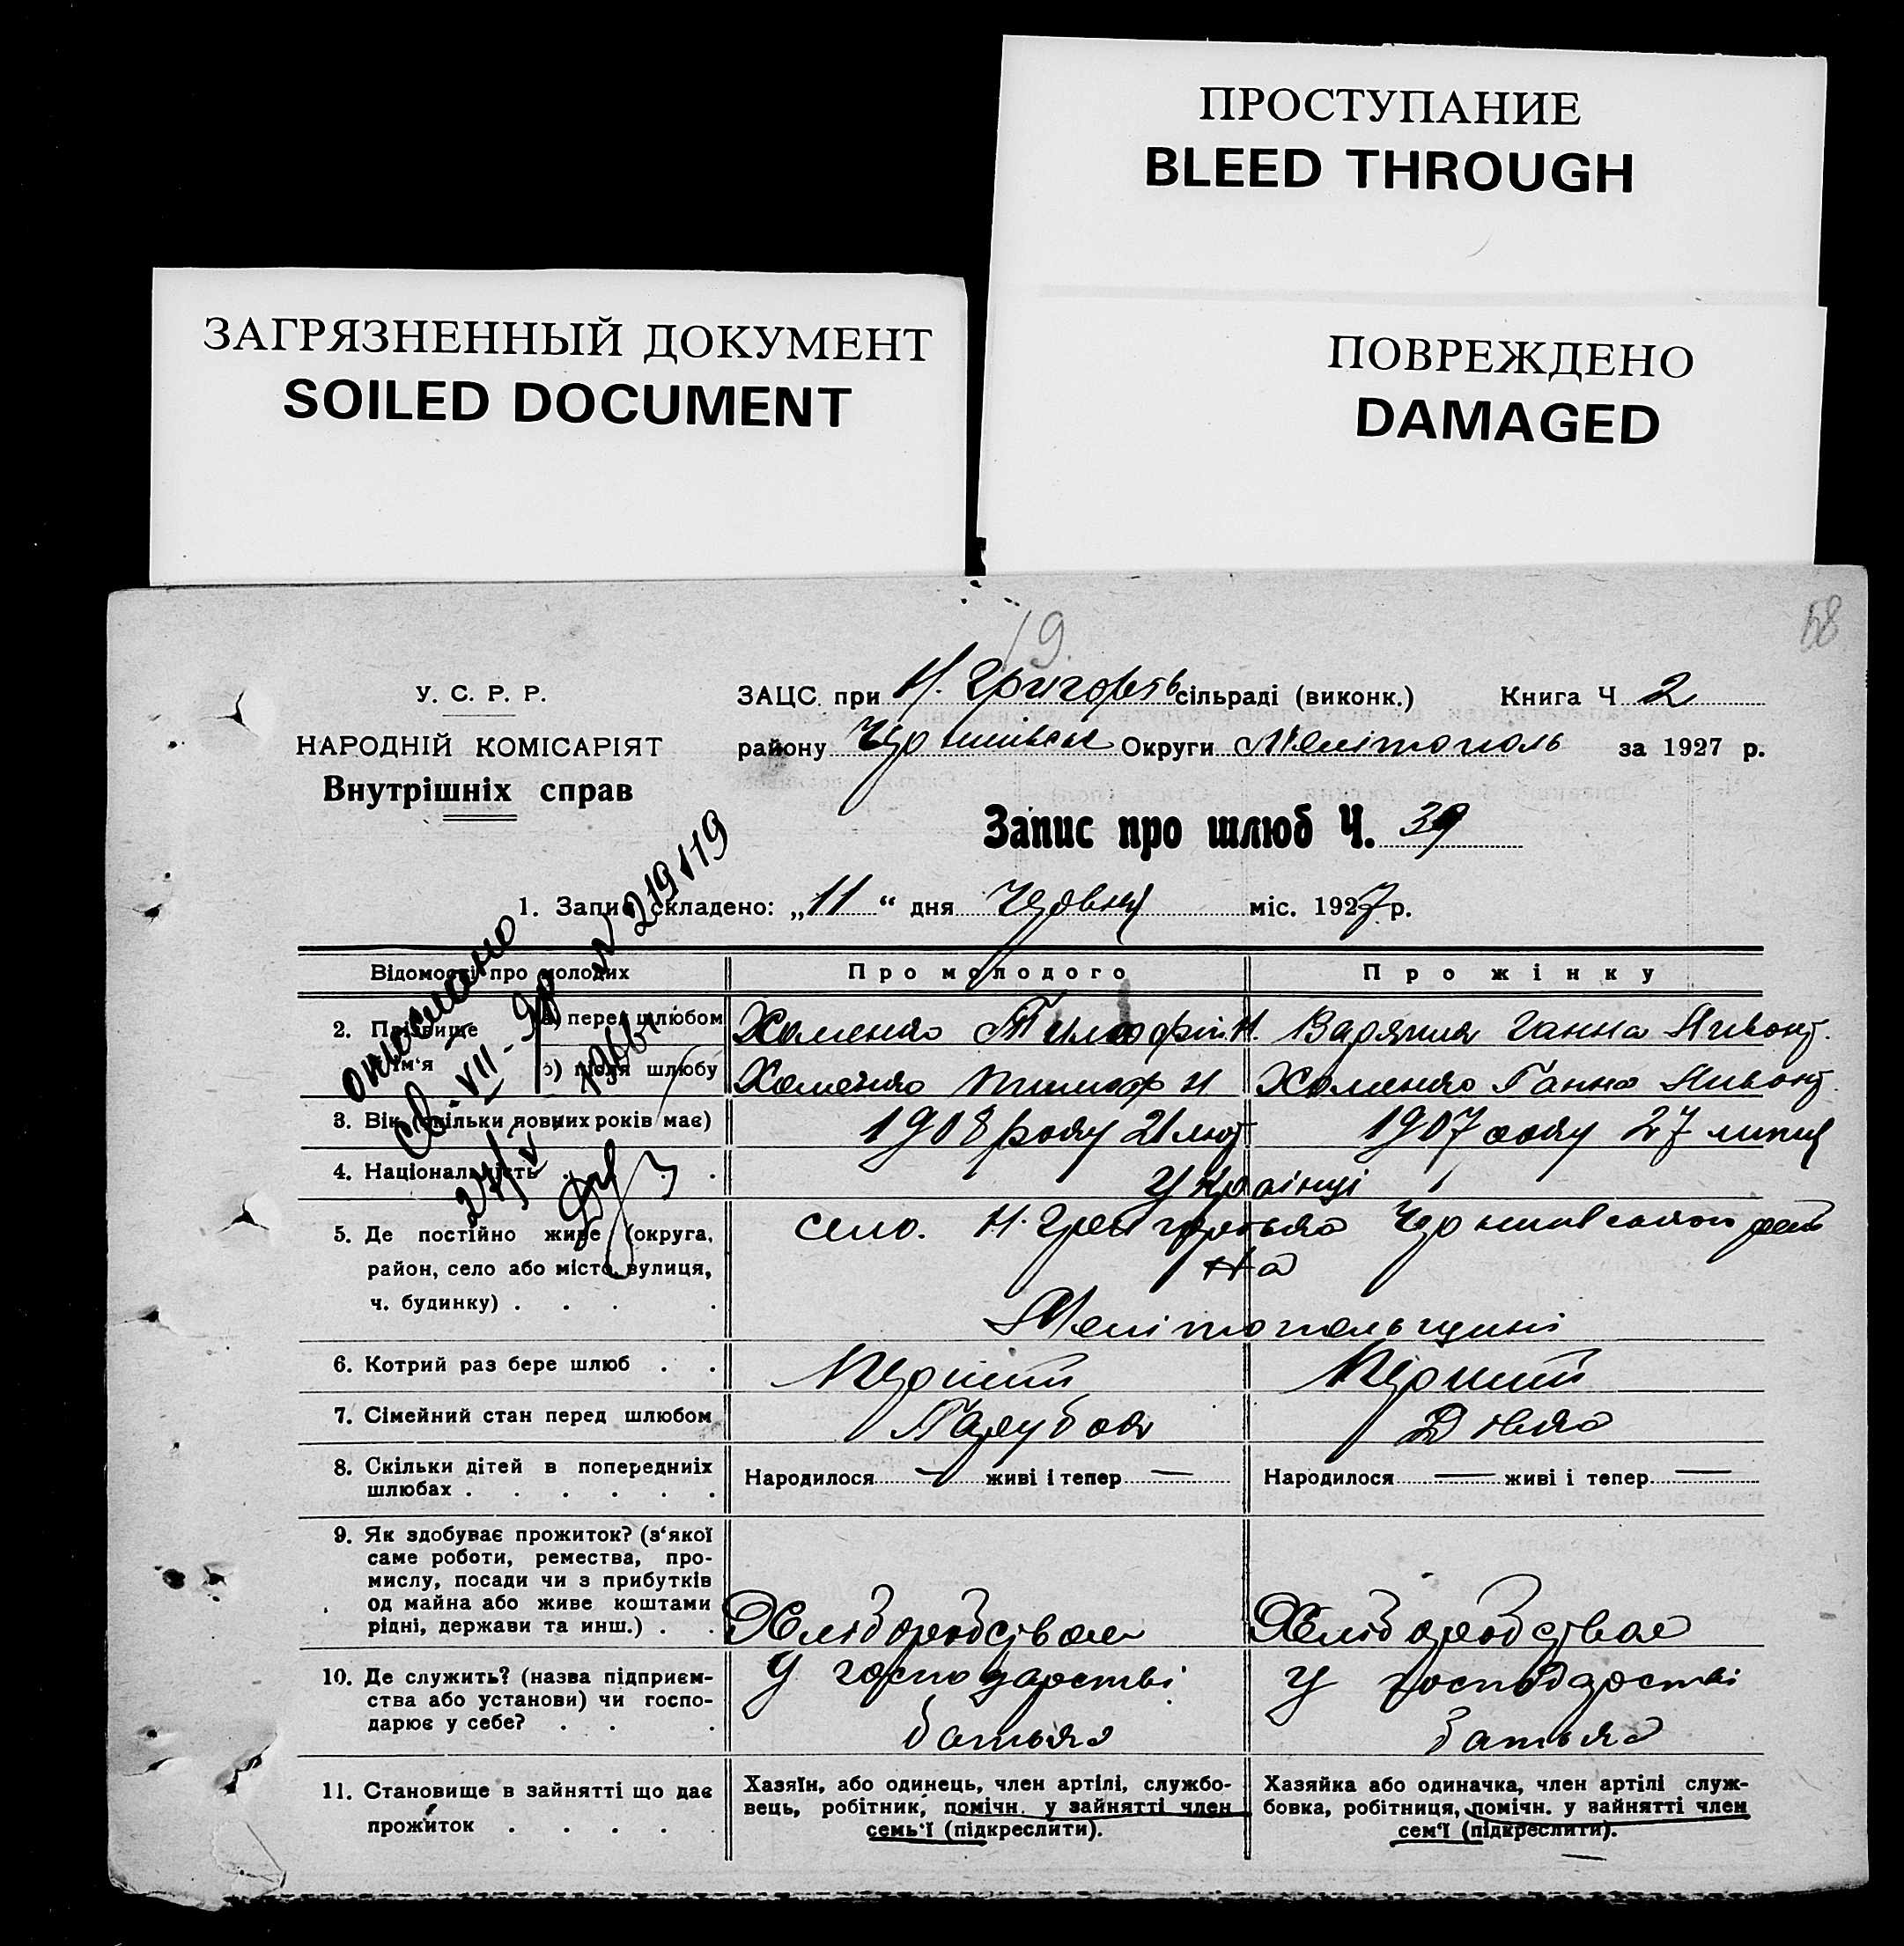 ПРОСТУПАНИЕ
BLEED THROUGH
ЗАГРЯЗНЕННЫЙ ДОКУМЕНТ
SOILED DOCUMENT
ПОВРЕЖДЕНО
DAMAGED
19.
68
У. С. Р. Р.
НАРОДНІЙ КОМІСАРІЯТ
Внутрішніх справ
ЗАЦС при Н. Григорвсь сільраді (виконк.) Книга Ч 2
району Округи Мелітополь за 1927 р.
Запис про шлюб Ч. 39
1. Запис складено: „11“ дня Червня міс. 1927 р.
Відомості про молодих Про молодого Про жінку
2. Прізвище ім‘я
а) перед шлюбом Хоменко Тимофій Н. Ганна
б) після шлюбу Хоменко Тимоф Н. Хоменко Ганна
3. Вік (скільки повних років має) 1908 року 21 лют 1907 року 27 липня
4. Національність . . . Українці
5. Де постійно живе (округа, район, село або місто, вулиця, ч. будинку) . . . .
село. Н. Григорівка
на
Мелітопольщині
6. Котрий раз бере шлюб . . Перший Перший
7. Сімейний стан перед шлюбом Парубок Дівка
8. Скільки дітей в попередниіх
шлюбах . . . . . .
Народилося — живі і тепер — Народилося — живі і тепер —
9. Як здобуває прожиток? (з‘якої
саме роботи, ремества, про-
мислу, посади чи з прибутків
од майна або живе коштами
рідні, держави та инш.) . .
Хліборобством Хліборобством
10. Де служить? (назва підприєм-
ства або установи) чи госпо-
дарює у себе? . . .
У господарстві У господарстві
батька батька
11. Становище в зайнятті що дає
прожиток . . . . .
Хазяїн, або одинець, член артілі, службо-
вець, робітник, помічн. у зайнятті член
семь‘ї (підкреслити).
Хазяйка або одиначка, член артілі служ-
бовка, робітниця, помічн. у зайнятті член
сем‘ї (підкреслити).
отослано
Св. VII-ЯР № 219119
27/V 1966